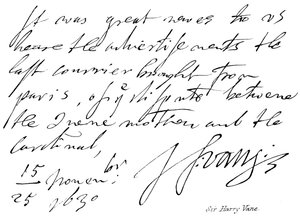 It was great newes to us
heare the advertisements the
last courrier brought from
paris of ye disputs betweene
the Quene mother and the
Cardinal,
15 Novembr:
25 1630
Sir Harry Vane